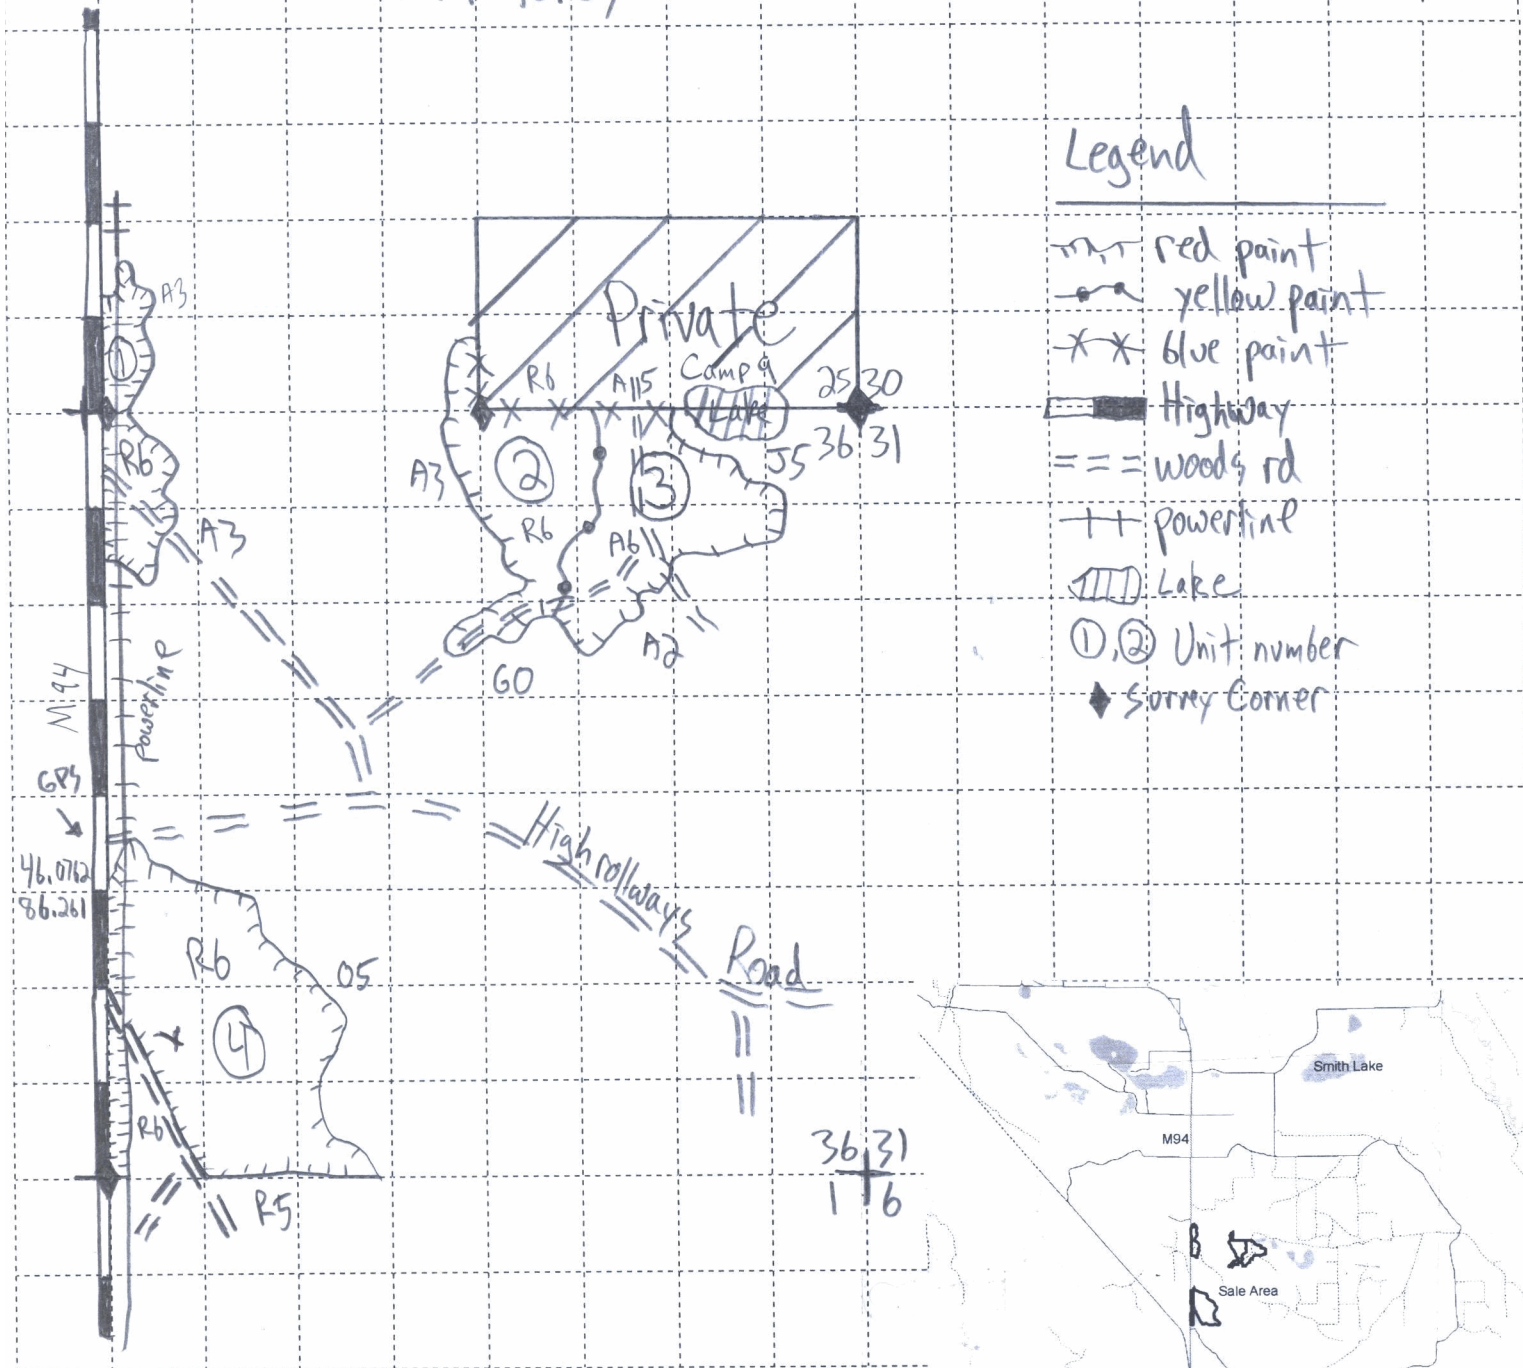 Legend
red paint
yellow paint
blue paint
Highway
woods rd
powerline
Lake
①,② Unit number
Survey Corner
A3
①
R6
A3
Private
R6
A 15
Camp 9
Lake
25 30
36 31
A3
②
③
J5
R6
A6
A2
GO
M-94
Powerline
GPS
46.0762
86.261
High rollways
Road
R6
05
④
R6
R5
36 31
1 6
Smith Lake
M94
Sale Area